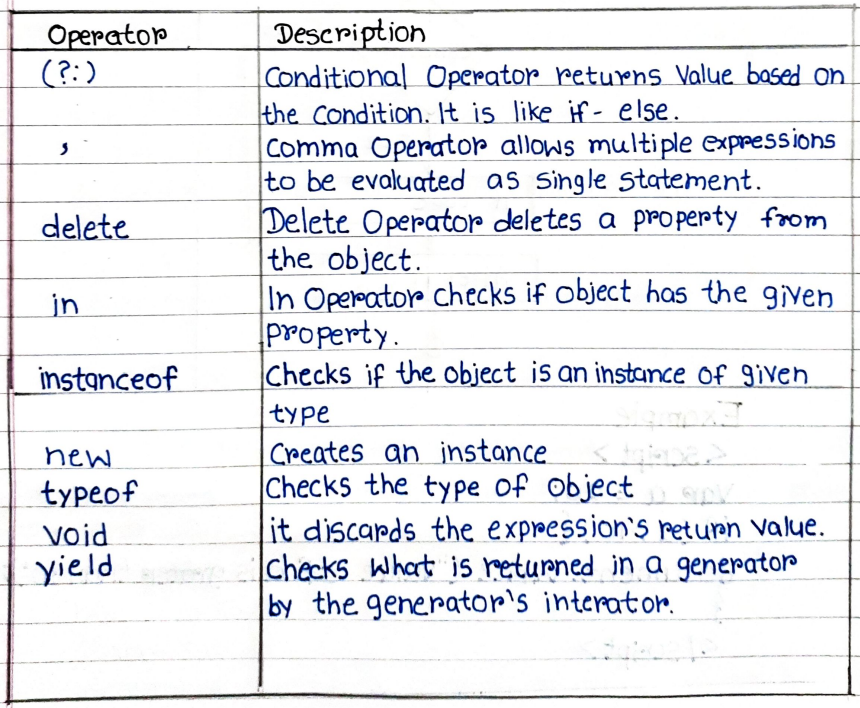 Operator Description
(?:) Conditional Operator returns Value based on
the Condition. It is like if- else.
, Comma Operator allows multiple expressions
to be evaluated as single statement.
delete Delete Operator deletes a property from
the object.
in In Operator checks if object has the given
property.
instanceof Checks if the object is an instance of given
type
new Creates an instance
typeof Checks the type of object
void it discards the expression's return value.
yield Checks what is returned in a generator
by the generator's interator.